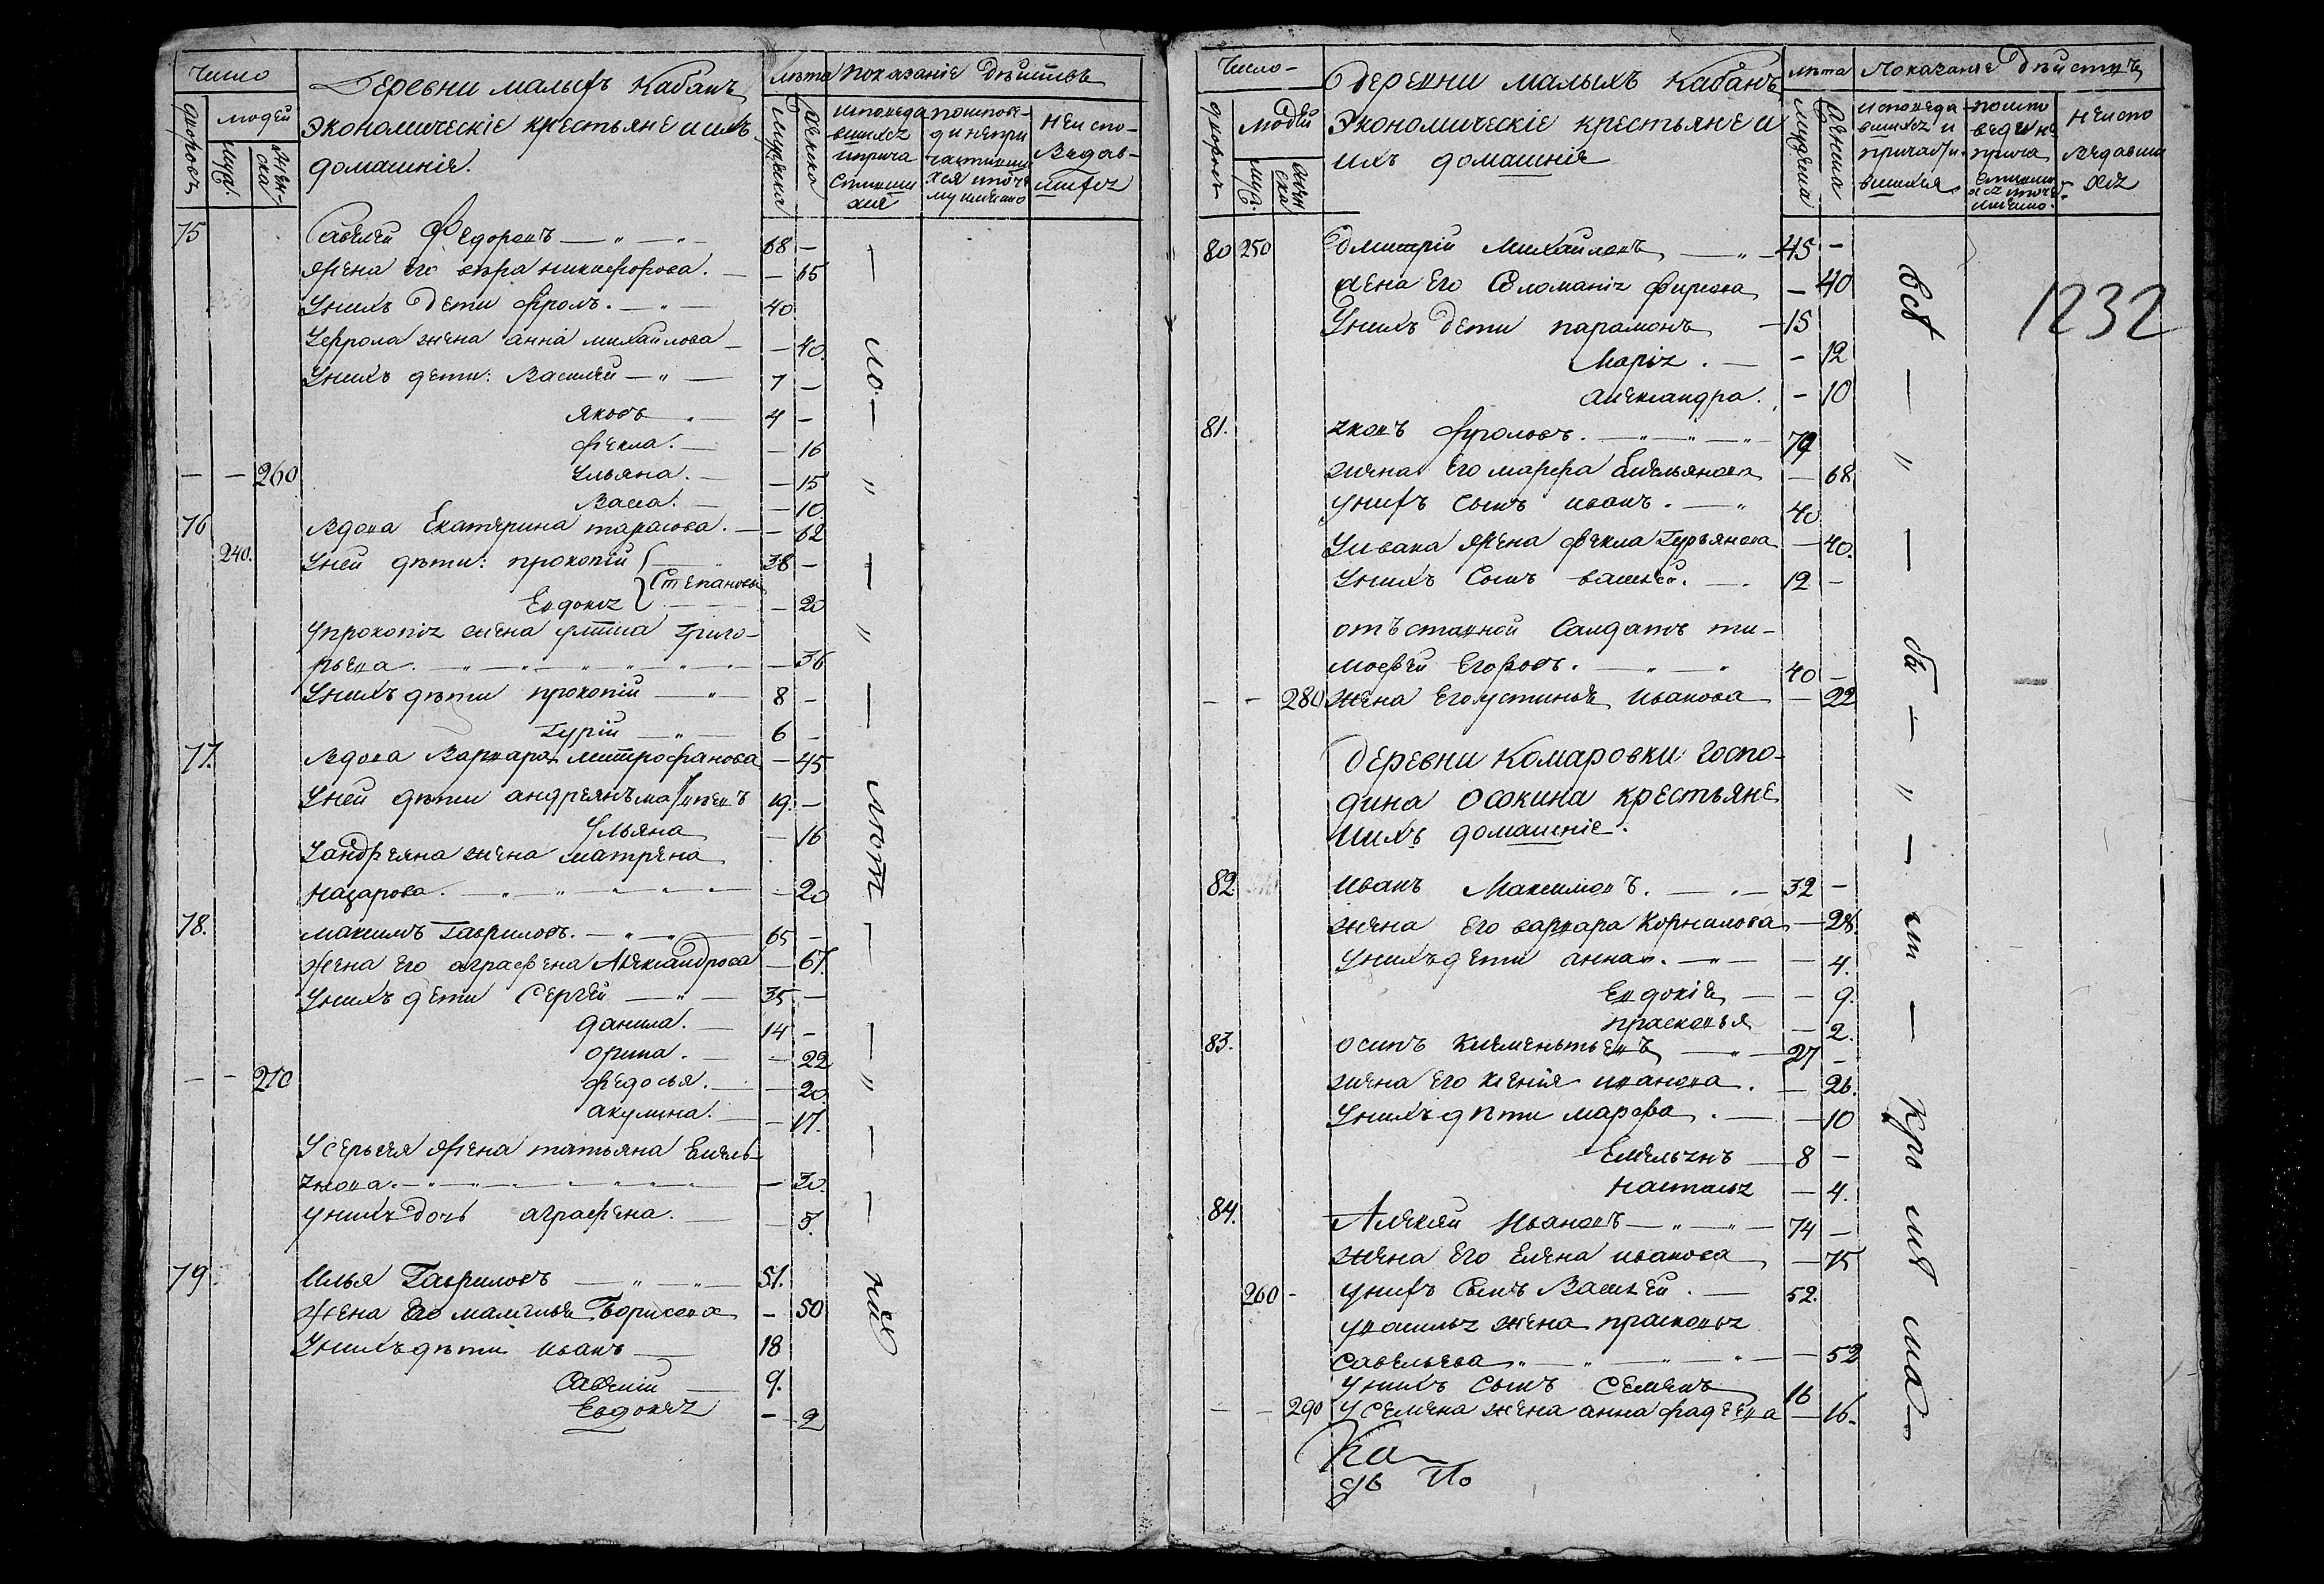 Число
Деревни малыхъ Кабанъ
лѣта показаніе дѣйствъ
дворовъ людей
муж. женска
Экономическіе крестьяне и ихъ
домашніе.
мужеска женска
исповеда
вшихся
и прича
стивши
хся
неиспо-
ведав-
шихся
75 Савелей Федоровъ — " — " — 68 —
жена его вѣра никифорова. — — 65
У нихъ дети фролъ. — " — 40
У фрола жена анна михайлова — — 40.
У нихъ дети: Василей — " — 7 —
яковъ — 4 —
фекла. — — 16
— — 260 Ульяна. — — 15
Васса. — — 10.
76 вдова Екатерина тарасова. — — 62
240. У ней дѣти: прокопій 38 —
Степановы
Евдокия — 20
У прокопия жена Григо-
рьева. — 36
У нихъ дѣти прокопій — " — 8 —
Гурій — " — 6 —
77. вдова Варвара Митрофанова — 45
У ней дѣти андреянъ матвѣевъ 19. —
Ульяна — 16
У андреяна жена матрена
Назарова. — 20
78. максимъ Гавриловъ. — " — " — 65 —
жена его аграфена Александрова — 67
У нихъ дети Сергей — " — 35 —
данила. — 14 —
орина. — — 22
— — 270 федосья. — — 20.
акулина. — — 17.
У серьгея жена татьяна Емель-
янова. — 30.
у нихъ дочь аграфена. — — 5.
79 Илья Гавриловъ — " — " — 51.
жена его маланья Борисова — 50
У нихъ дѣти иванъ — 18
Савелий — 9.
Евдокея — 2
Число
Деревни малыхъ Кабанъ
лѣта Показаніе дѣйствъ
дворовъ людей
муж. женска
Экономическіе крестьяне и
ихъ домашніе
мужеска женска
исповеда
вшихся и
причасти
вшихся
неиспо
ведавши
хся
1232
80 250 Дмитрій Михайловъ — " — 45 —
жена его Соломания фирсова — 40
У нихъ дети парамонъ — 15
Марія. — — 12
Александра. — 10
81. яковъ фроловъ. — " — " — 79
жена его марфа Емельянова — 68
у нихъ сынъ иванъ. — " 40
У ивана жена фекла Гурьянова — 40.
У нихъ сынъ василей. — 12 —
отъставной Салдатъ ти-
мофей Егоровъ. — " — " 40 —
— — 280 жена его устинья Иванова — 22
Деревни Комаровки госпо-
дина осокина крестьяне
и ихъ домашніе.
82 Иванъ Максимовъ. — " — 32 —
жена его варвара Корнилова — 28.
У нихъ дети анна. — " — — 4.
Евдокія — — 9.
прасковья — 2.
83. осипъ Клементьевъ — " — 27 —
жена его ксения иванова. — 26.
У нихъ дѣти марфа. — — 10
Емельянъ — 8 —
настасья — 4.
84. Алексей Ивановъ — " — " — 74 —
жена его Елена иванова — 75
260 — у нихъ сынъ Василей. — 52.
у василья жена прасковья
Савельева — 52
У нихъ сынъ Семенъ 16
— — 290 У семена жена анна фадеева — 16.